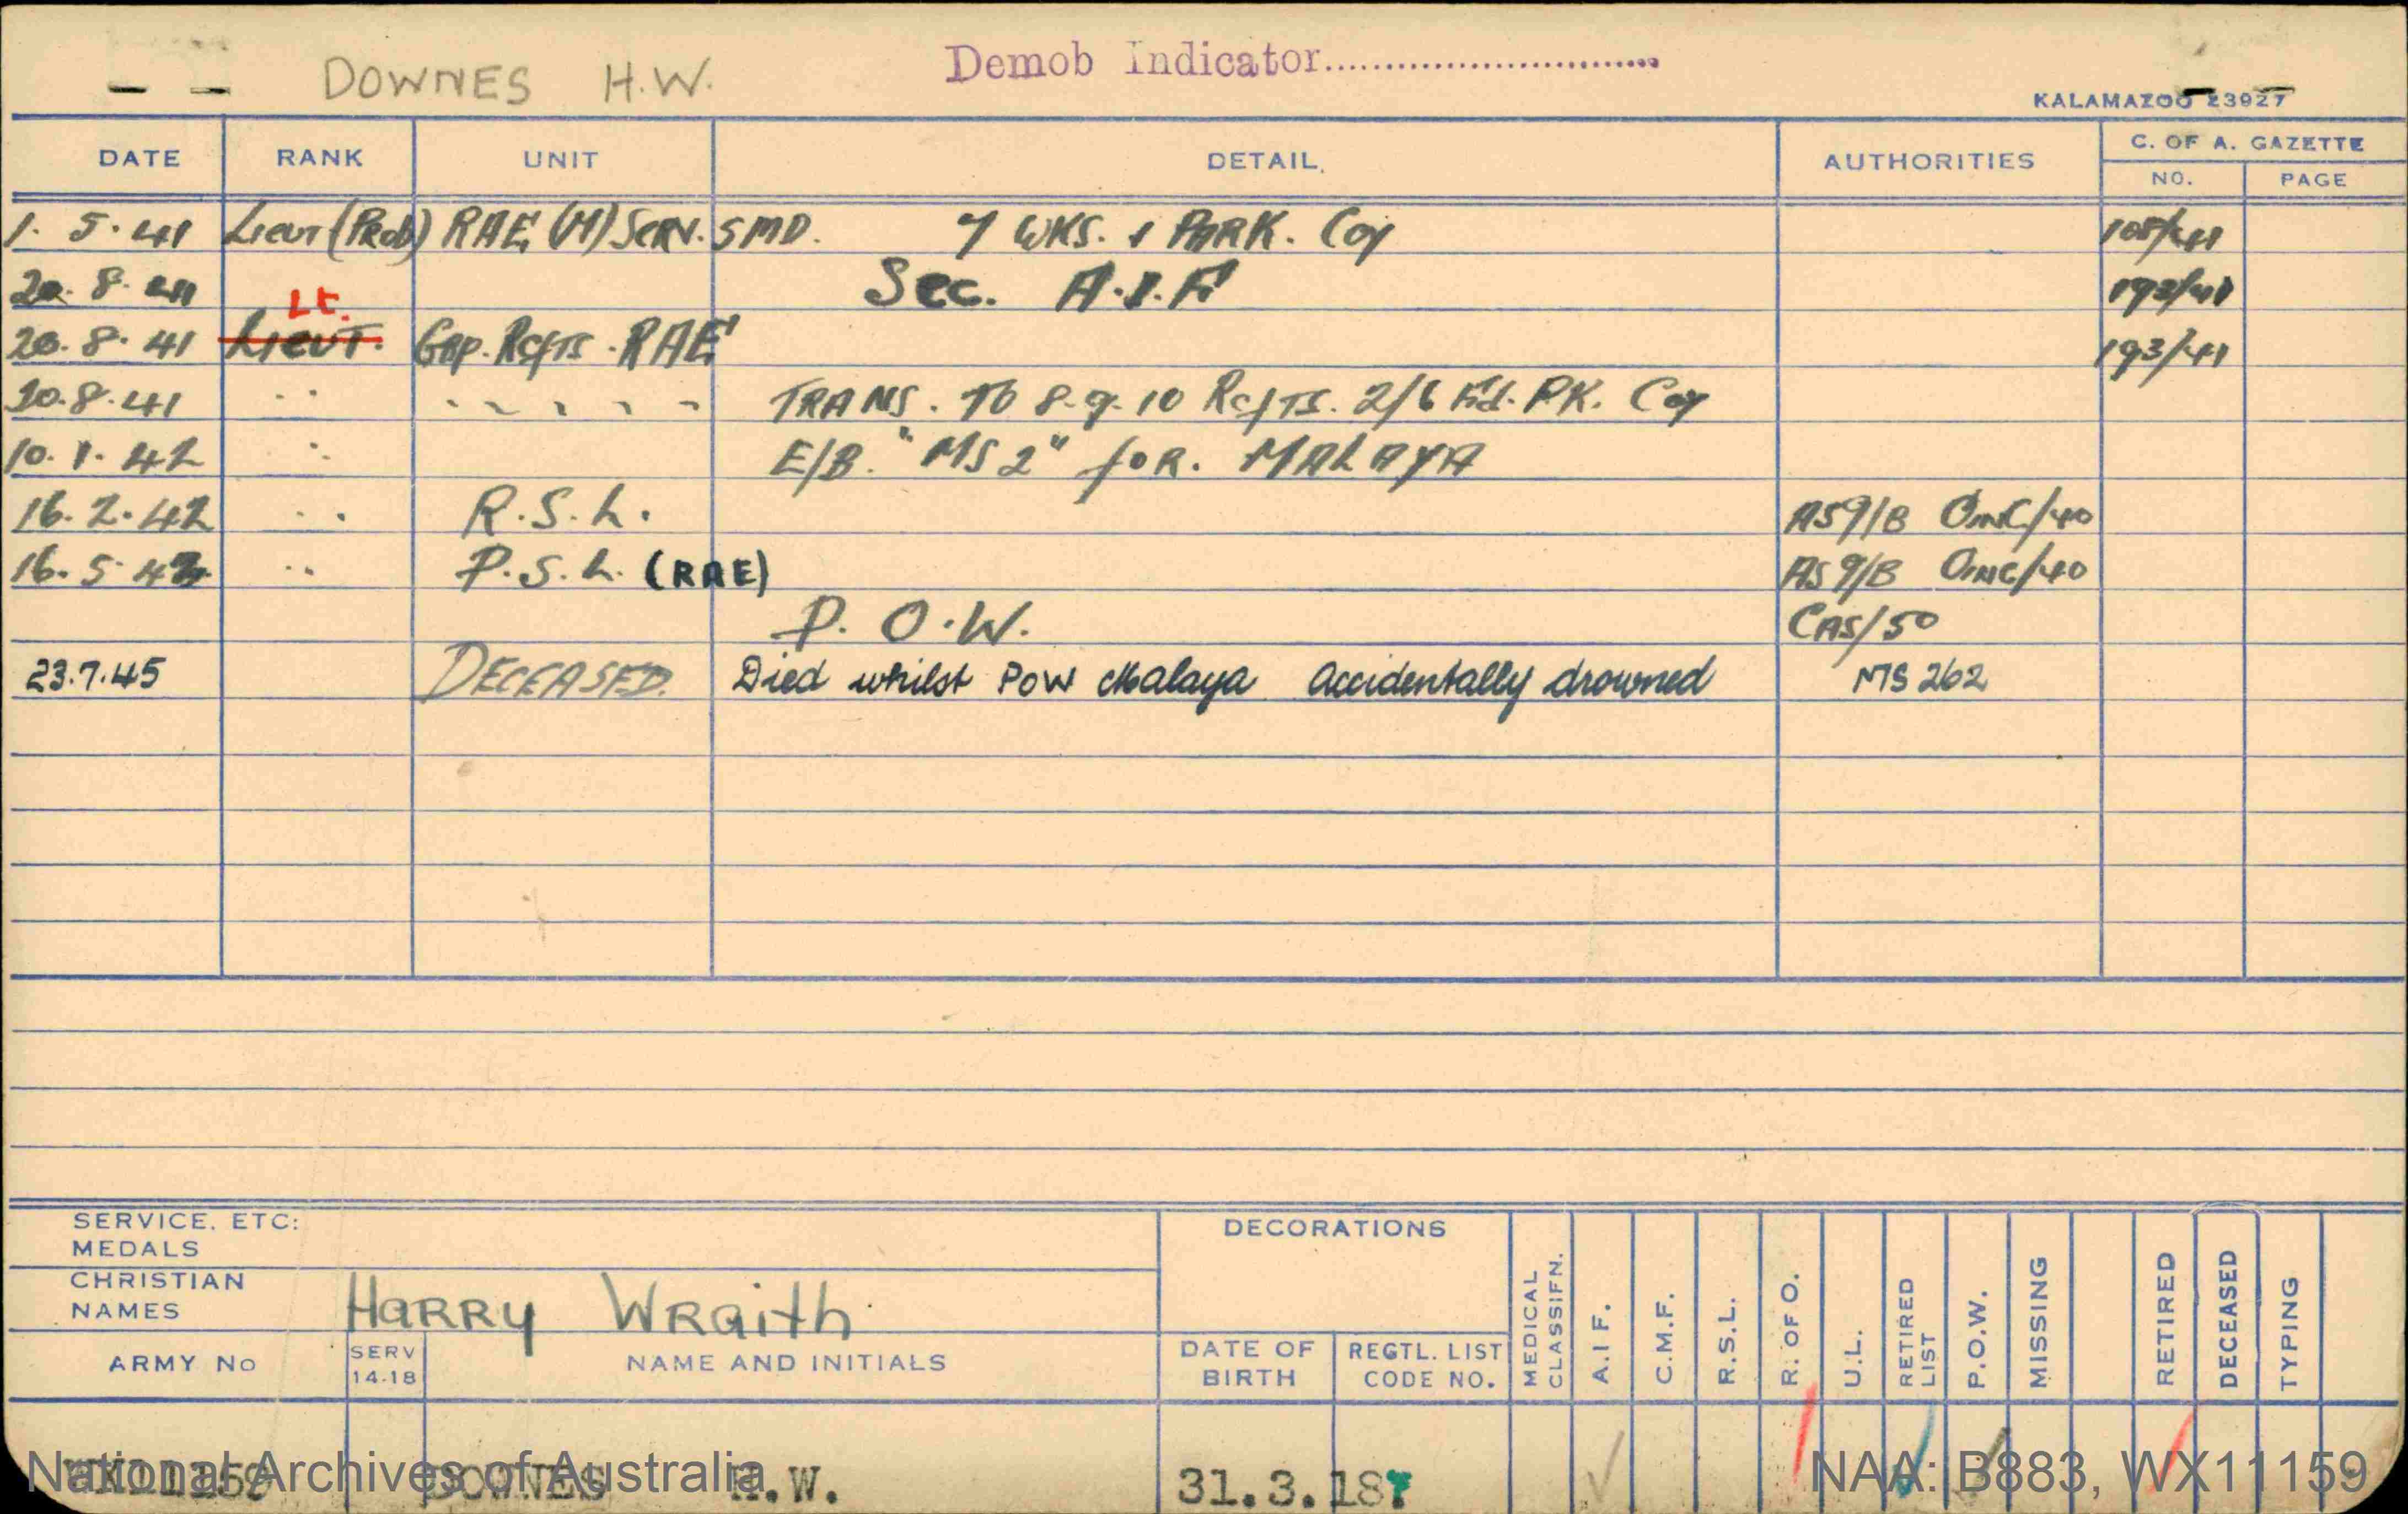 DOWNES H.W. Demob Indicator
KALAMAZOO 23927
DATE RANK UNIT DETAIL. AUTHORITIES C. OF A. GAZETTE
NO. PAGE
1. 5. 41 Lieut (Prob) RAE (M) Serv. 5 MD. 7 WKS. & PARK. Coy 108/41
20. 8. 41 Sec. A.I.F 193/41
Lt.
20. 8. 41 Lieut. Gap. Rcfts. RAE 193/41
TRANS. TO 8. 9. 10 Rcfts. 2/6 Fd. PK. Coy
10. 1. 42 E/B. "MS 2" for. MALAYA
16. 2. 42 R.S.L. AS9/B OMC/40
16. 5. P.S.L. (RAE) AS9/B OMC/40
P.O.W. CAS/50
23.7.45 DECEASED. Died whilst POW Malaya Accidentally drowned MS 262
SERVICE. ETC:
MEDALS
DECORATIONS
CHRISTIAN
NAMES
Harry Wraith
ARMY No SERV
14-18
NAME AND INITIALS DATE OF
BIRTH
REGTL. LIST
CODE NO.
MEDICAL
CLASSIFN.
A.I F.
C.M.F.
R.S.L.
R. OF O.
U.L.
RETIRED
LIST
P.O.W.
MISSING
RETIRED
DECEASED
TYPING
WX11159 DOWNES H.W. 31.3.18
National Archives of Australia NAA: B883, WX11159